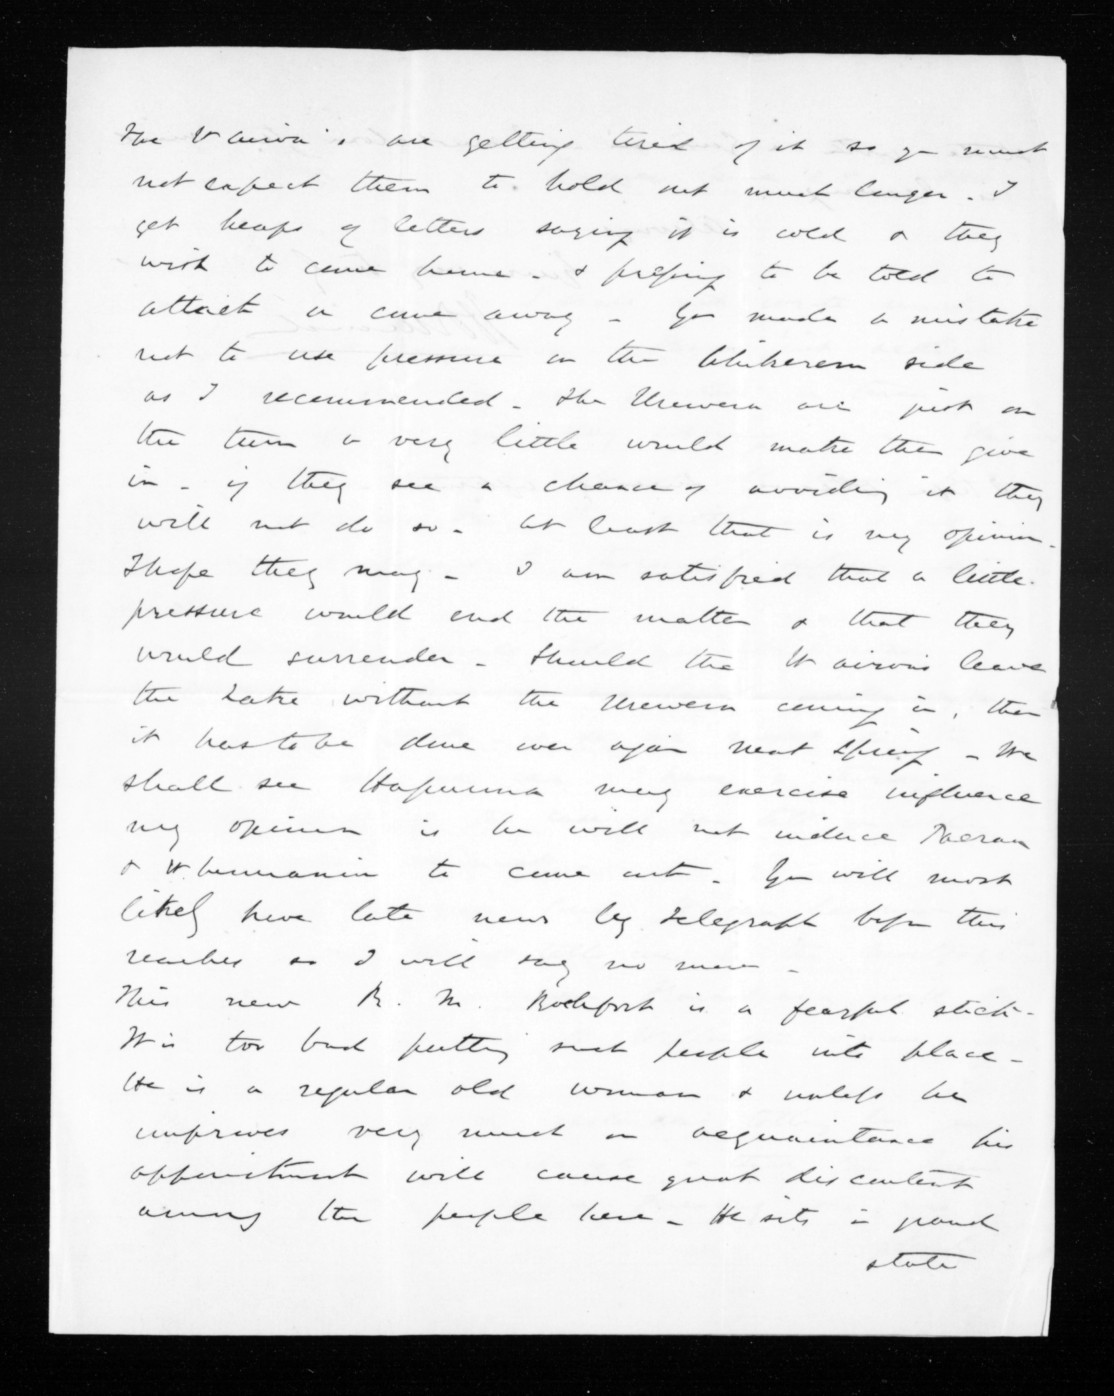 The Wairoa's are getting tired of it so you must
not expect them to hold out much longer. I
get heaps of letters saying it is cold & they
wish to come home - & pressing to be told to
attack or come away - You made a mistake
not to use pressure on the side
as I recommended - The Urewera are just on
the turn a very little would make them give
in - if they see a chance of avoiding it they
will not do so - At least that is my opinion -
I hope they may - I am satisfied that a little
pressure would end the matter & that they
would surrender - Should the Wairoas leave
the Lake without the Urewera coming in, then
it has to be done over again next Spring - We
shall see Hapurona may exercise influence
my opinion is he will not induce Paerau
& Whenuanui to come out - You will most
likely have late news by telegraph before this
reaches so I will say no more -
This new R. M. Rochfort is a fearful stick -
It is too bad putting such people into place -
He is a regular old woman & unless he
improves very much on acquaintance his
appointment will cause great discontent
among the people here - He sits in grand
state